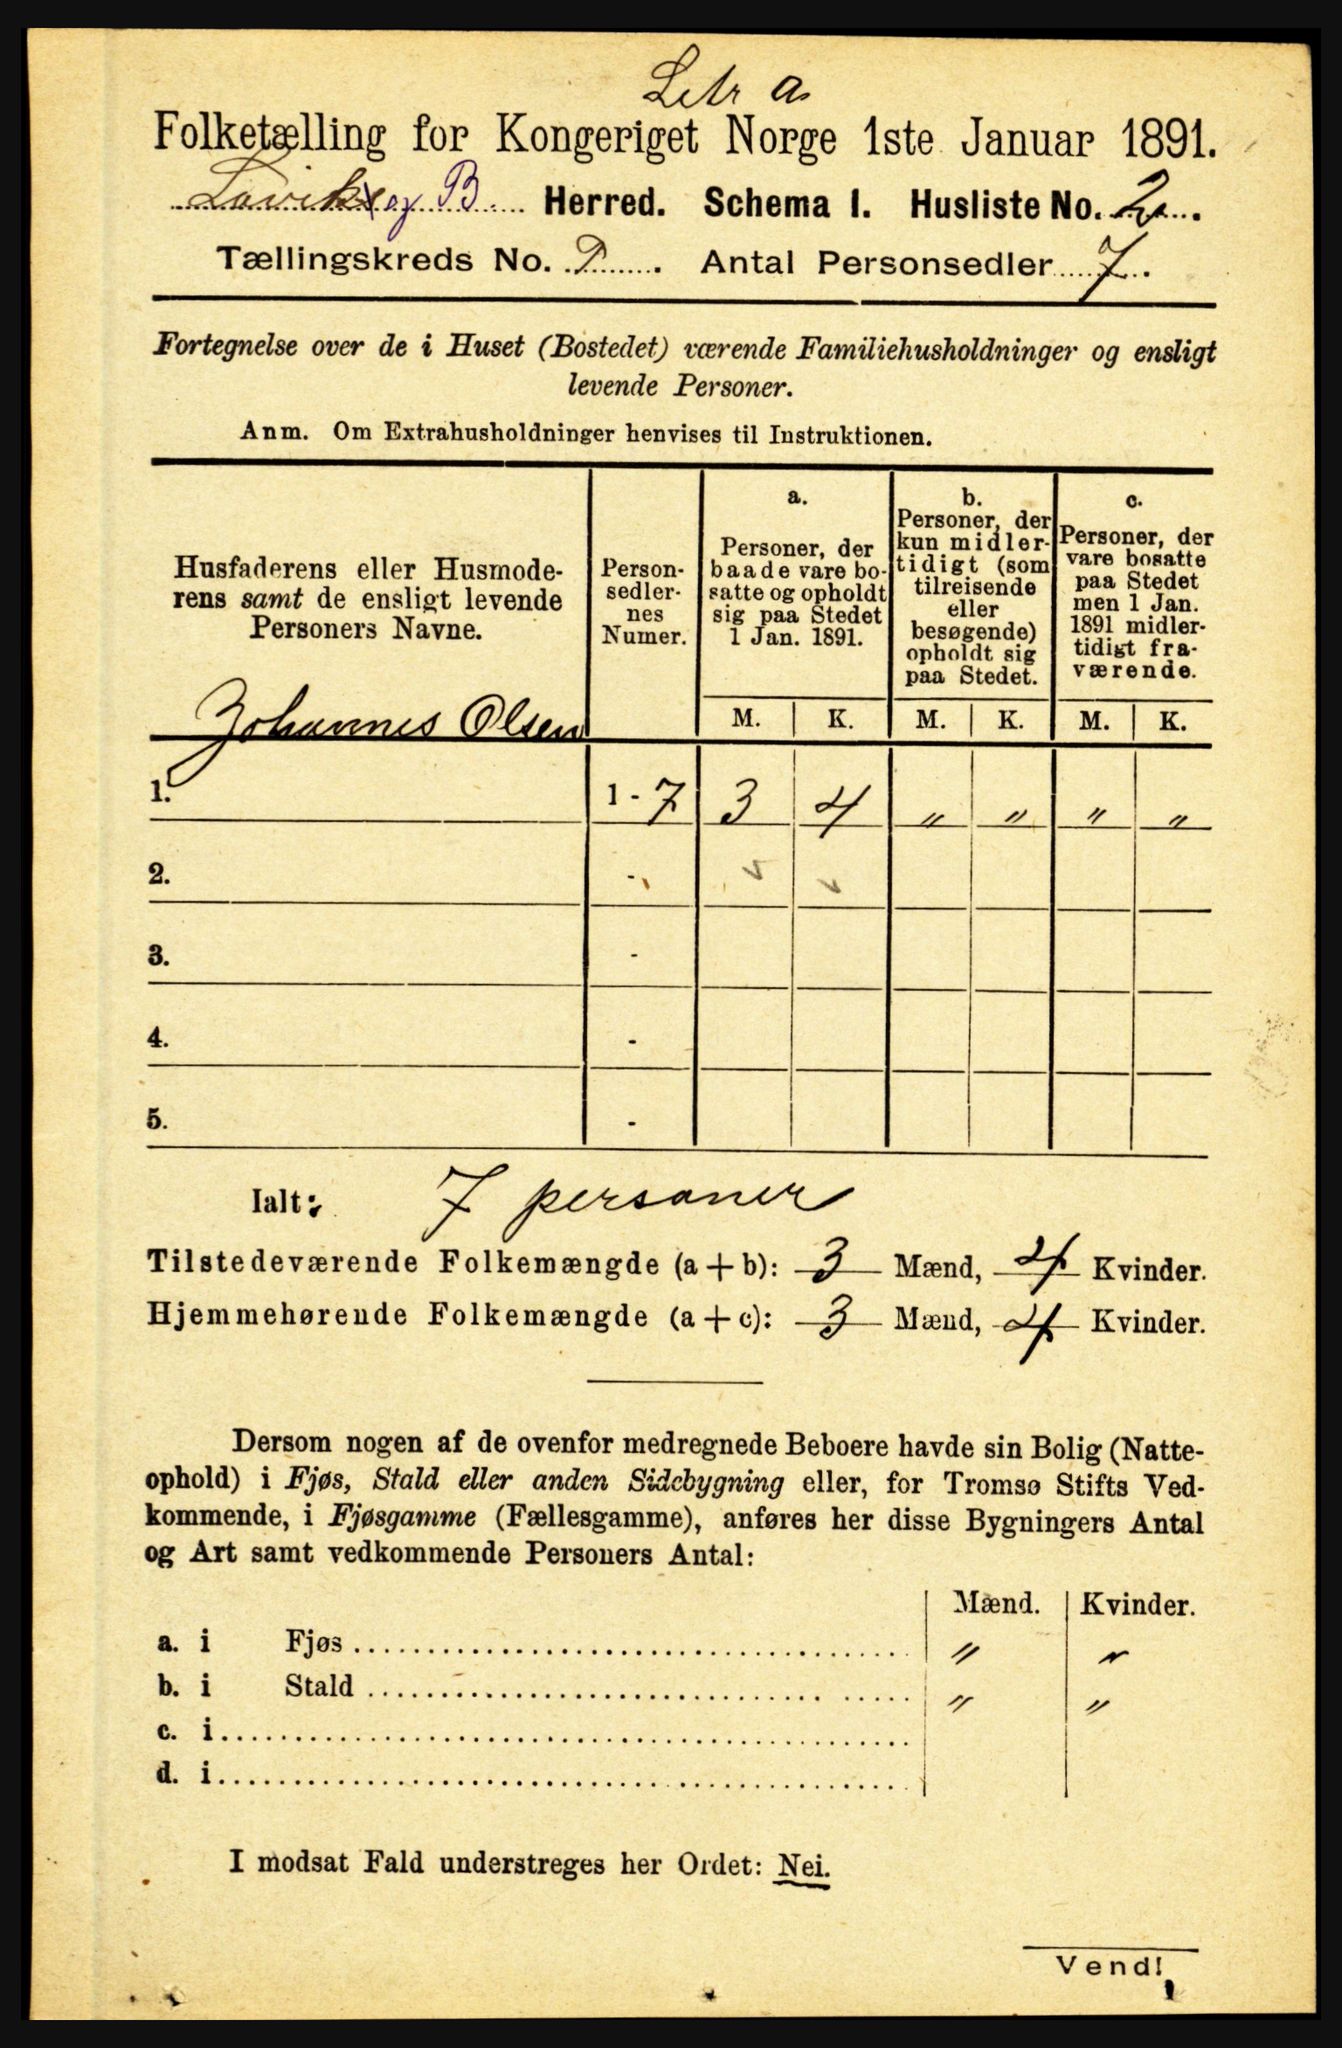 Litr a
Folketælling for Kongeriget Norge 1ste Januar 1891.
Lavik og B. Herred. Schema I. Husliste No. 2.
Tællingskreds No. . Antal Personsedler 7.
Fortegnelse over de i Huset (Bostedet) værende Familiehusholdninger og ensligt
levende Personer.
Anm. Om Extrahusholdninger henvises til Instruktionen.
Husfaderens eller Husmode-
rens samt de ensligt levende
Personers Navne.
Person-
sedler-
nes
Numer.
a.
Personer, der
baade vare bo-
satte og opholdt
sig paa Stedet
1 Jan. 1891.
b.
Personer, der
kun midler-
tidigt (som
tilreisende
eller
besøgende)
opholdt sig
paa Stedet.
c.
Personer, der
vare bosatte
paa Stedet
men 1 Jan.
1891 midler-
tidigt fra-
værende.
M. K. M. K. M. K.
Johannes Olsen
1. 1 - 7 3 4 " " " "
2. -
3. -
4. -
5. -
Ialt: 7 personer
Tilstedeværende Folkemængde (a + b): 3 Mænd, 4 Kvinder.
Hjemmehørende Folkemængde (a + c): 3 Mænd, 4 Kvinder.
Dersom nogen af de ovenfor medregnede Beboere havde sin Bolig (Natte-
ophold) i Fjøs, Stald eller anden Sidebygning eller, for Tromsø Stifts Ved-
kommende, i Fjøsgamme (Fællesgamme), anføres her disse Bygningers Antal
og Art samt vedkommende Personers Antal:
Mænd. Kvinder.
a. i Fjøs " "
b. i Stald " "
c. i
d. i
I modsat Fald understreges her Ordet: Nei.
Vend!